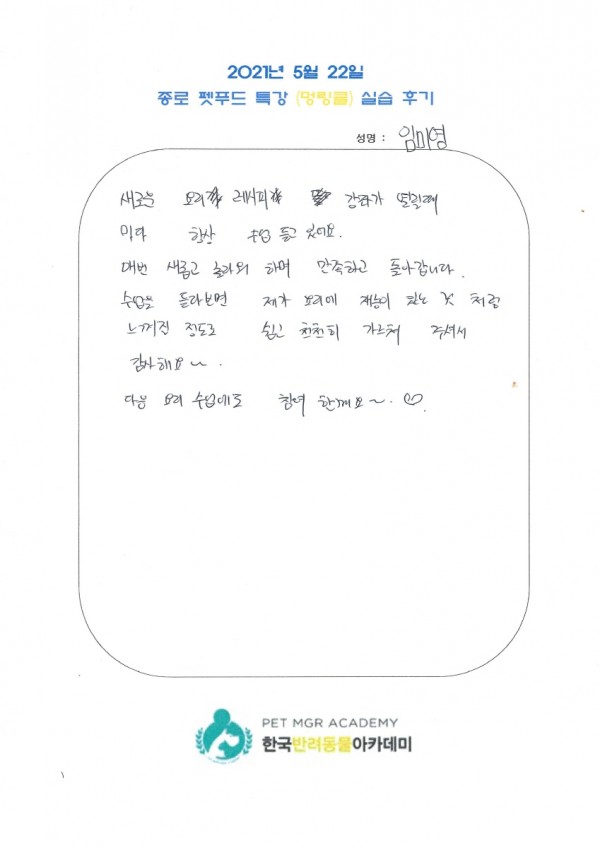 2021년 5월 22일
종로 펫푸드 특강 (멍링클) 실습 후기
성명 : 임미영
새로운 요리 레시피 강좌가 열릴때
마다 항상 수업 듣고 있어요.
매번 새롭고 놀라워 하며 만족하고 돌아갑니다.
수업을 듣다보면 제가 요리에 재능이 있는 것 처럼
느껴진 정도로 쉽고 천천히 가르쳐 주셔서
감사해요~.
다음 요리 수업에도 참여 할게요~. ♡
PET MGR ACADEMY
한국반려동물아카데미